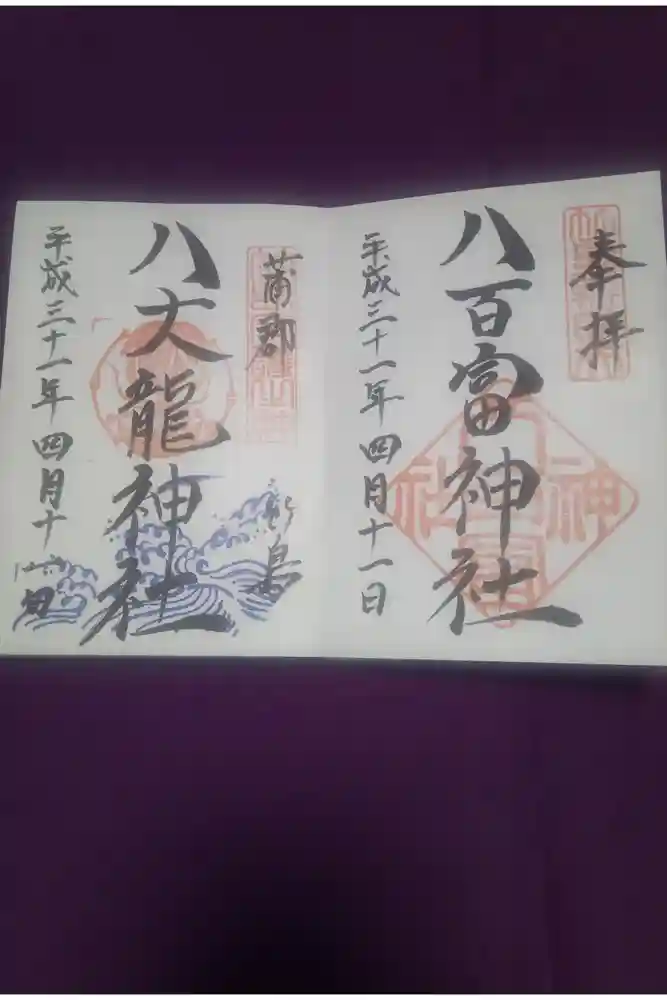 奉拝
八百富神社
平成三十一年四月十一日
蒲郡
竹島
八大龍神社
平成三十一年四月十一日